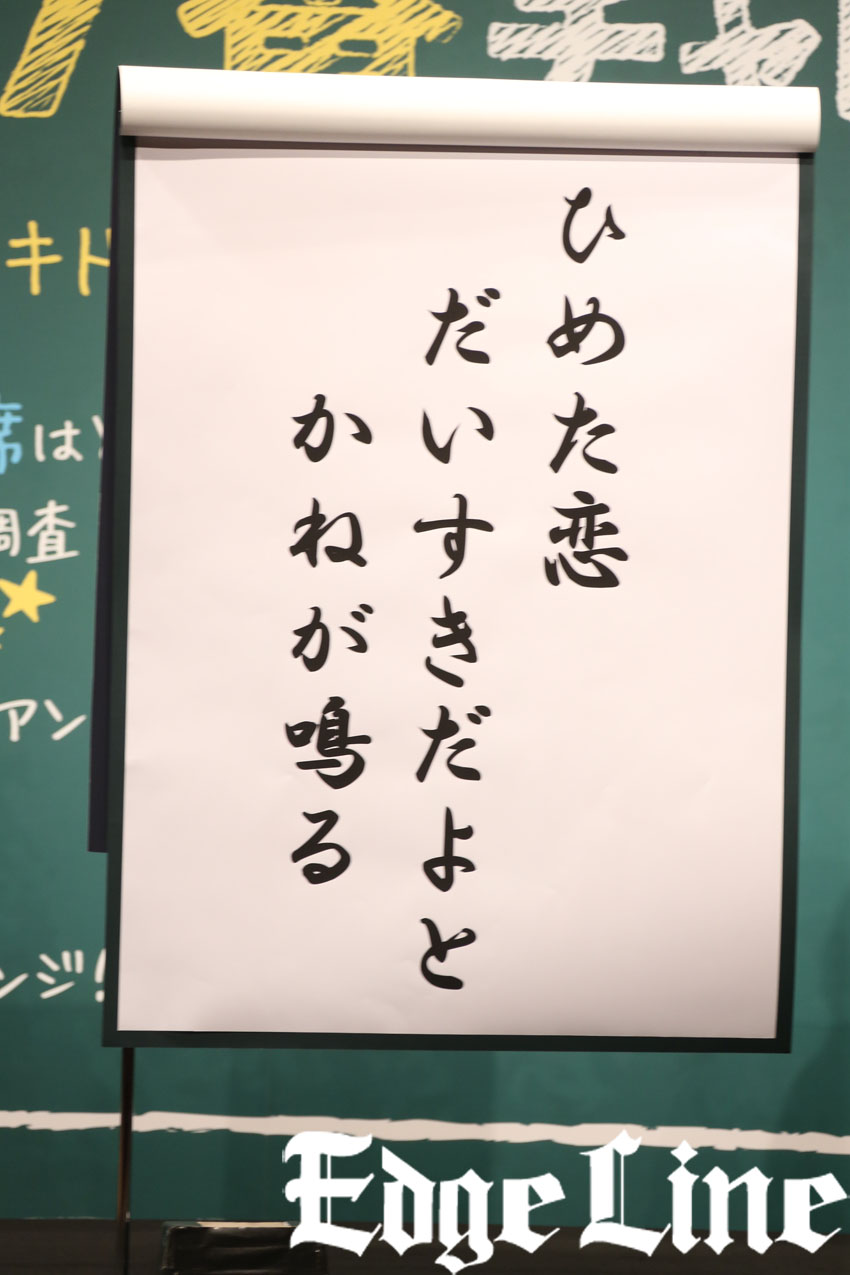 ひめた恋
だいすきだよと
かねが鳴る
キド
席は
調査
アン
ンジ!
Edge Line